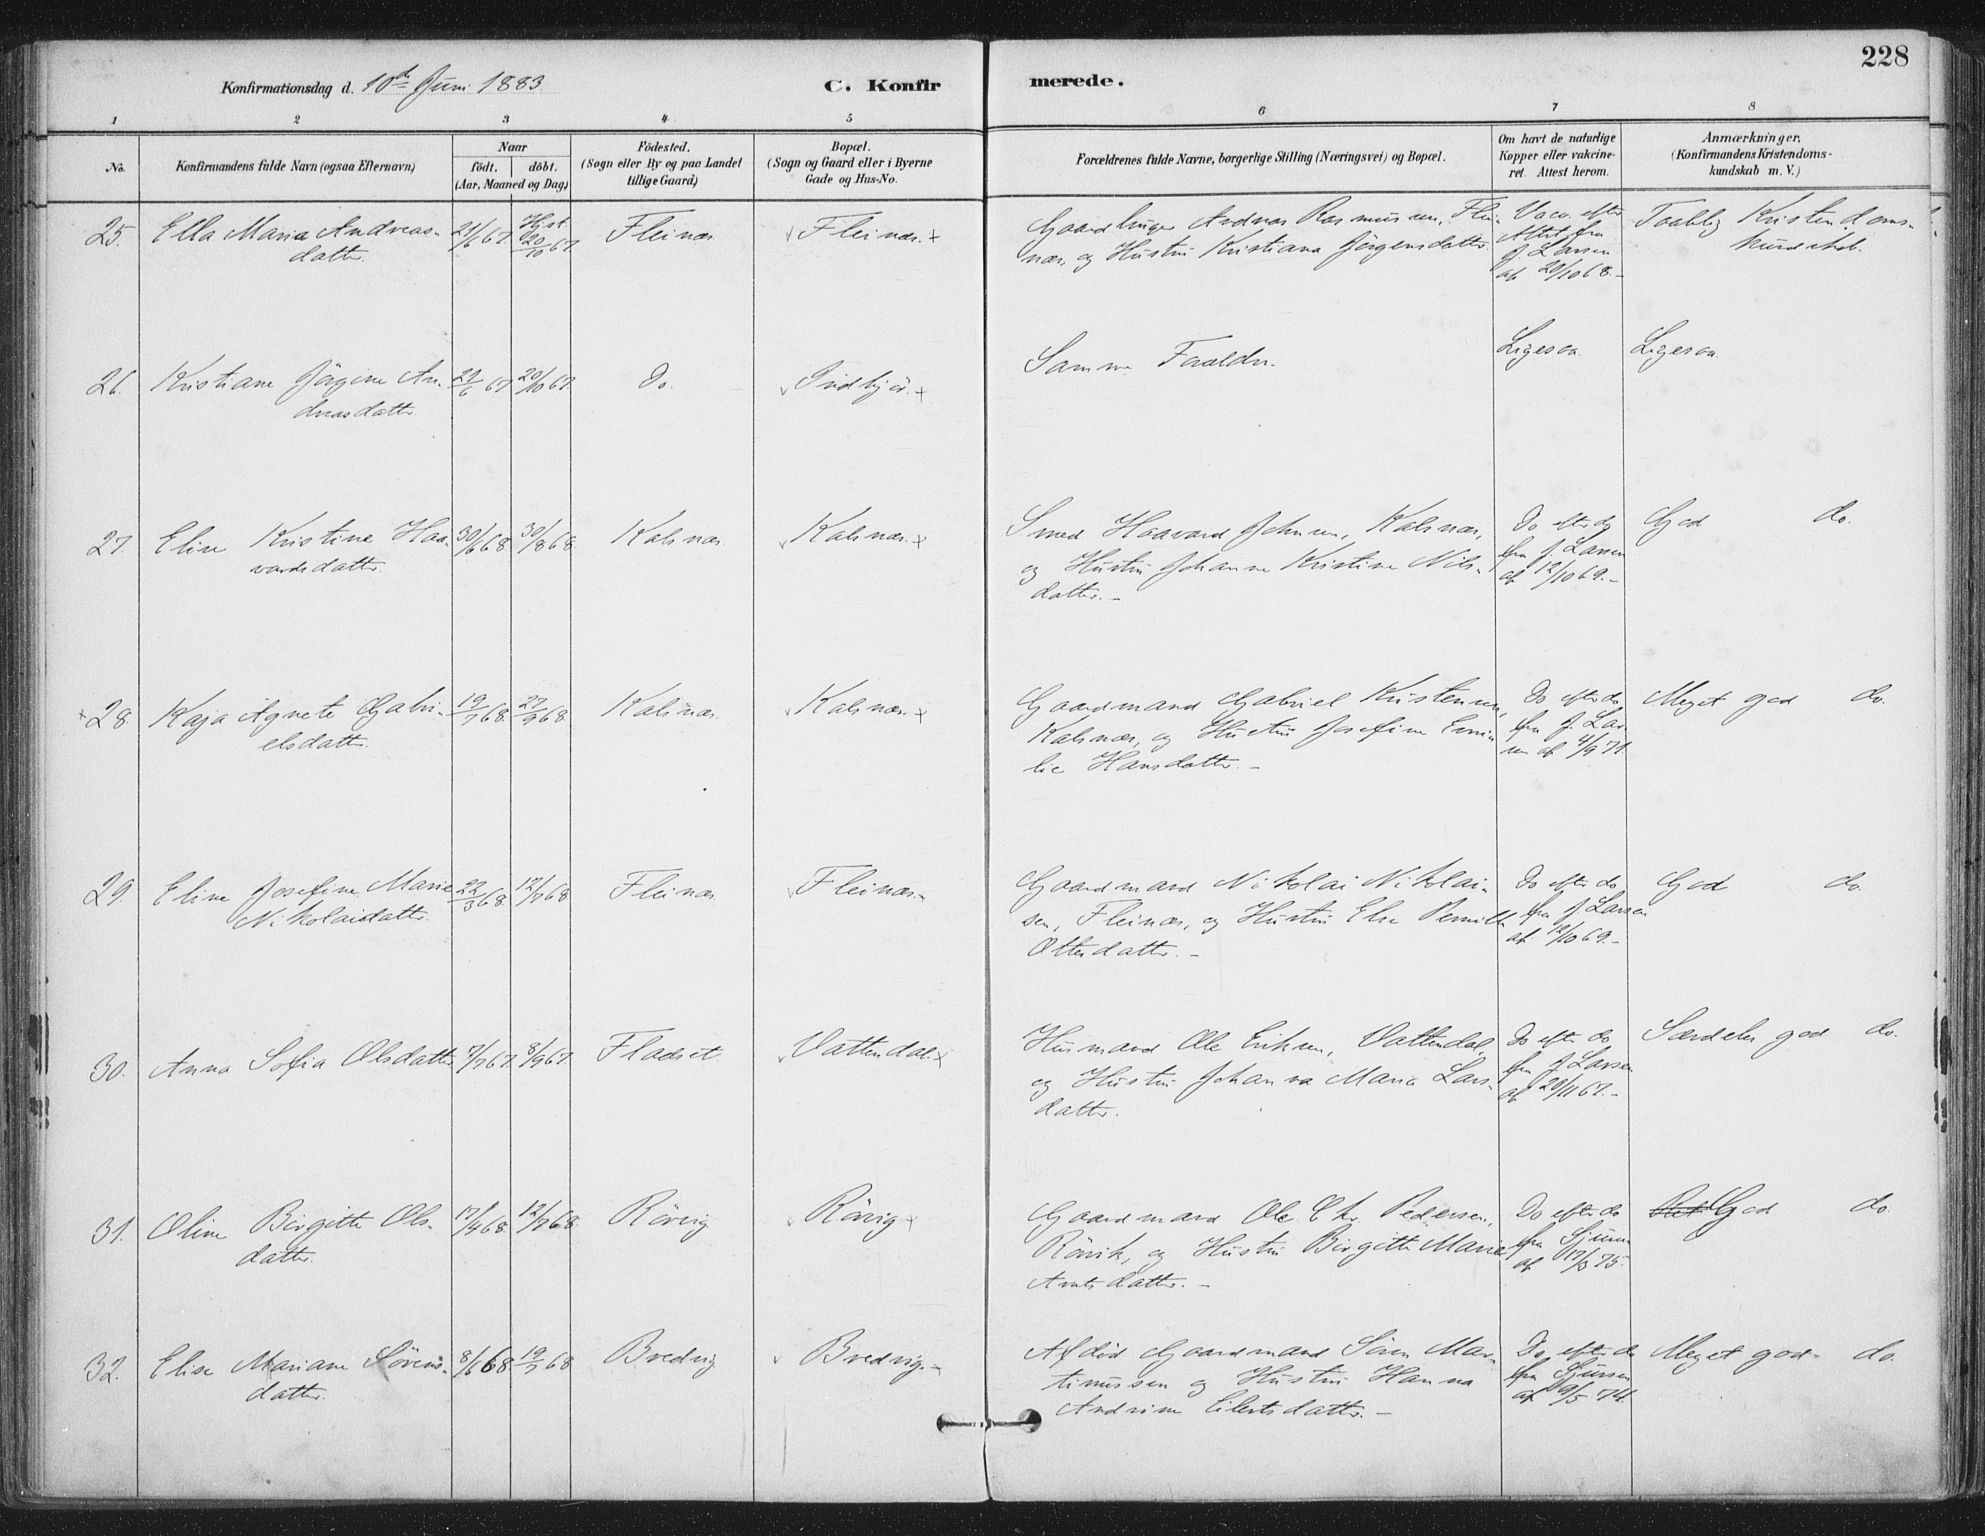 228
Konfirmationsdag d. 10de Juni 1883
C. Konfirmerede.
1 2 3 4 5 6 7 8
No.
Konfirmandens fulde Navn (ogsaa Efternavn)
Naar
födt. döbt.
(Aar, Maaned og Dag)
Födested.
(Sogn eller By og paa Landet
tillige Gaard)
Bopæl.
(Sogn og Gaard eller i Byerne
Gade og Hus-No.
Forældrenes fulde Navne, borgerlige Stilling (Næringsvei) og Bopæl.
Om havt de naturlige
Kopper eller vakcine-
ret. Attest herom.
Anmærkninger,
(Konfirmandens Kristendoms-
kundskab m. V.)
25. Ella Maria Andreas-
datter 21/6 67 Hjdt. 20/10 67 Fleinæs Fleinæs.
Gaardbruger Andreas Rasmussen, Flei-
næs, og Hustru Kristiana Jörgensdatter
Vacc. efter
Attest fra
J. Larsen
af 20/10 68.-
Taalelig Kristendoms-
kundskab.
26. Kristiane Jörgine An-
dreasdatter 22/6 67 20/10 67 Do.
Samme Forældre.
Ligesaa. Ligesaa.
27. Eline Kristine Haa-
vardsdatter. 30/6 68 30/8 68 Kalsnæs Kalsnæs.
Smed Haavard Johnsen, Kalsnæs,
og Hustru Johanna Kristine Nils-
datter.-
Do efter do
fra J. Larsen
af 12/10 69.-
God do.
28. Kaja Agnete Gabri-
elsdatter. 19/7 68 27/9 68 Kalsnæs Kalsnæs.
Gaardmand Gabriel Kristensen,
Kalsnæs, og Hustru Josefine Emi-
lie Hansdatter.-
Do efter do
fra J. Lar-
sen af 4/9 71.
Meget god do.
29. Eline Josefine Marie
Nikolaidatter. 22/3 68 12/7 68 Fleinæs Fleinæs.-
Gaardmand Nikolai Nikolai-
sen, Fleinæs, og Hustru Else Pernille
Ottersdatter.-
Do efter do
fra J. Larsen
af 12/10 69.-
God do.
30. Anna Sofia Olsdatter 7/7 67. 8/9 67. Fladset Vattendal.
Husmand Ole Eriksen, Vattendal,
og Hustru Johanna Maria Lars-
datter.
Do efter do
fra J. Larsen
af 20/11 67.-
Særdeles god do.
31. Oline Birgitte Ols-
datter. 17/4 68 12/7 68 Rörvig Rörvig
Gaardmand Ole Chr. Pedersen,
Rörvik, og Hustru Birgitte Marie
Arntsdatter.-
Do efter do
fra
af 17/3 75.
God do.
32. Elise Mariane Sørens-
datter. 8/6 68 19/7 68 Bredvig Bredvig.-
Afdöd Gaardmand Sören Mar-
tinussen og Hustru Hanna
Andrine Eilertsdatter.-
Do efter do
fra
af 19/5 74.
Meget god- do.